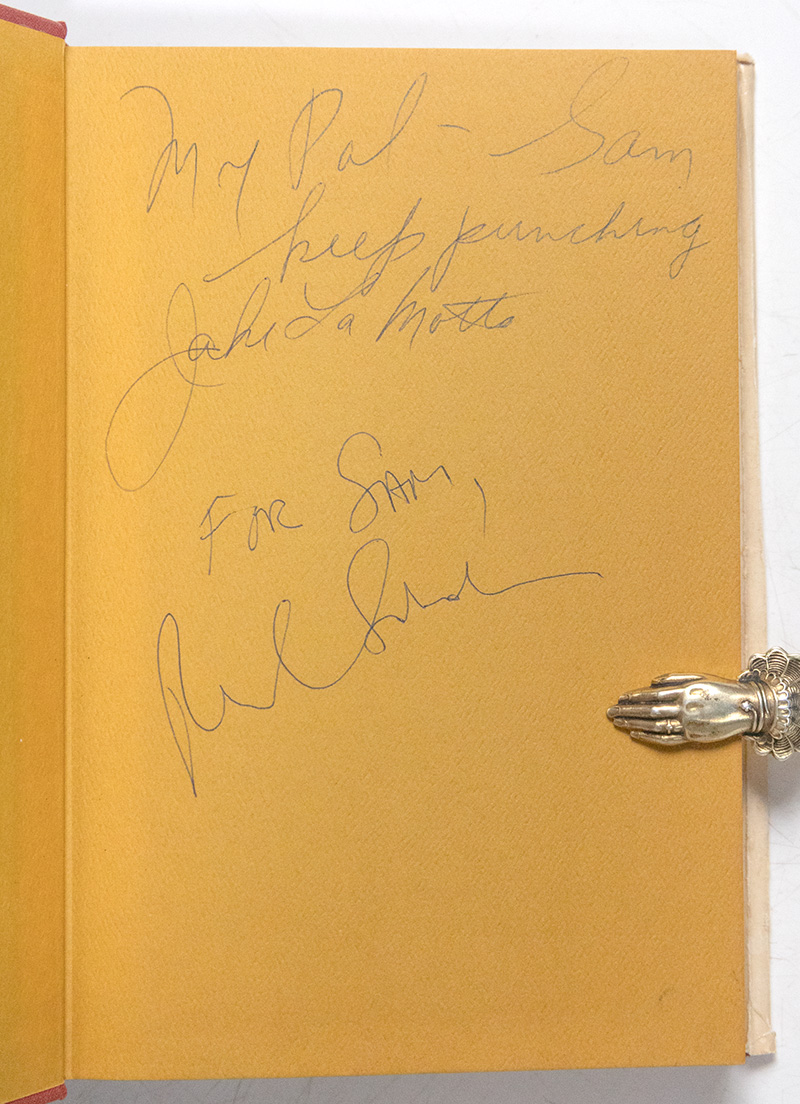 My Pal - Sam
keep punching
Jake La Motta
FOR SAM,